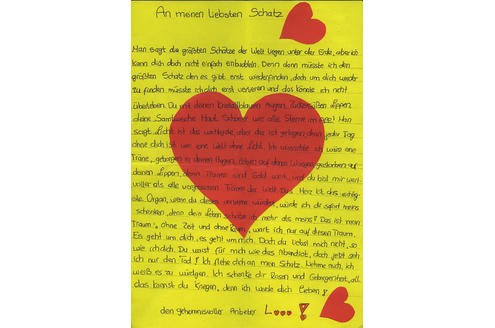 An meinen liebsten Schatz
Man sagt die größten Schätze der Welt liegen unter der Erde, aber ich
kann dich doch nicht einfach einbuddeln. Denn dann müsste ich den
größten Schatz den es gibt erst wiederfinden, doch um dich wieder
zu finden müsste ich dich erst verlieren und das könnte ich nicht
überleben. Du mit deinen Kristallblauen Augen, Zuckersüßen Lippen
deine Samtweiche Haut, Schöner wie alle Sterne im All! Man
sagt Licht ist das wertvollste, aber das ist gelogen, denn jeder Tag
ohne dich ist wie eine Welt ohne Licht. Ich wünschte ich wäre eine
Träne, geboren in deinen Augen, leben auf deinen Wangen, gestorben auf
deinen Lippen, denn Tränen sind Gold wert, und du bist mir wert-
voller als alle vergossenen Tränen der Welt. Das Herz ist das wichtig-
ste Organ, wenn du dieses verlieren würdest, würde ich dir sofort meins
schenken, denn dein leben schätze ich mehr als meins! Das ist mein
Traum, ohne Zeit und ohne Raum, wart ich nur auf diesen Traum.
Es geht um dich, es geht um mich. Doch du liebst mich nicht, so
wie ich dich. Du warst für mich wie das Abendrot, doch jetzt seh
ich nur den Tod! Ich flehe dich an mein Schatz. Nehme mich, ich
weiß es zu würdigen. Ich schenke dir Rosen und Geborgenheit, all
das kannst du kriegen, denn ich werde dich lieben!
den geheimnisvoller Anbeter L...!